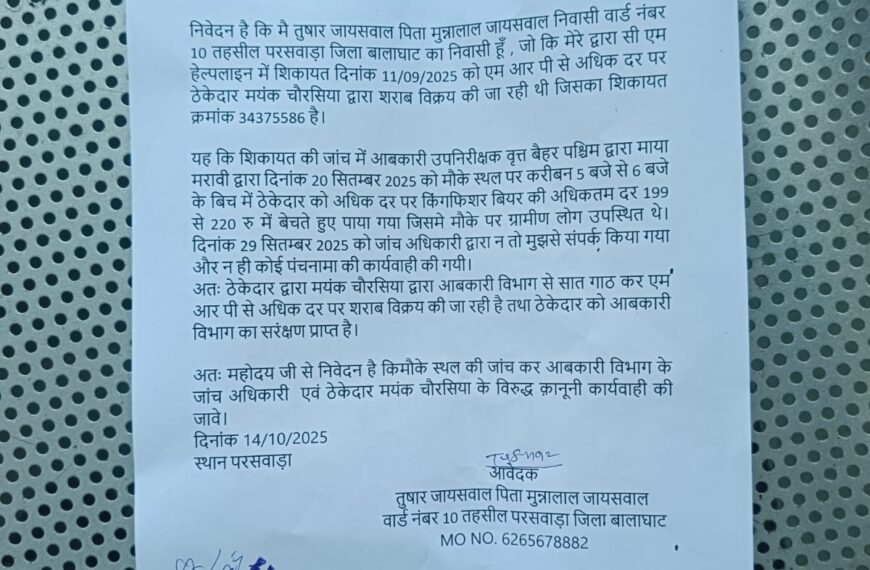 निवेदन है कि मै तुषार जायसवाल पिता मुन्नालाल जायसवाल निवासी वार्ड नंबर
10 तहसील परसवाड़ा जिला बालाघाट का निवासी हूँ , जो कि मेरे द्वारा सी एम
हेल्पलाइन में शिकायत दिनांक 11/09/2025 को एम आर पी से अधिक दर पर
ठेकेदार मयंक चौरसिया द्वारा शराब विक्रय की जा रही थी जिसका शिकायत
क्रमांक 34375586 है।
यह कि शिकायत की जांच में आबकारी उपनिरीक्षक वृत्त बैहर पश्चिम द्वारा माया
मरावी द्वारा दिनांक 20 सितम्बर 2025 को मौके स्थल पर करीबन 5 बजे से 6 बजे
के बिच में ठेकेदार को अधिक दर पर किंगफिशर बियर की अधिकतम दर 199
से 220 रु में बेचते हुए पाया गया जिसमे मौके पर ग्रामीण लोग उपस्थित थे।
दिनांक 29 सितम्बर 2025 को जांच अधिकारी द्वारा न तो मुझसे संपर्क किया गया
और न ही कोई पंचनामा की कार्यवाही की गयी।
अतः ठेकेदार द्वारा मयंक चौरसिया द्वारा आबकारी विभाग से सात गाठ कर एम
आर पी से अधिक दर पर शराब विक्रय की जा रही है तथा ठेकेदार को आबकारी
विभाग का सरंक्षण प्राप्त है।
अतः महोदय जी से निवेदन है किमौके स्थल की जांच कर आबकारी विभाग के
जांच अधिकारी एवं ठेकेदार मयंक चौरसिया के विरुद्ध क़ानूनी कार्यवाही की
जावे।
दिनांक 14/10/2025
स्थान परसवाड़ा
आवेदक
तुषार जायसवाल पिता मुन्नालाल जायसवाल
वार्ड नंबर 10 तहसील परसवाड़ा जिला बालाघाट
MO NO. 6265678882